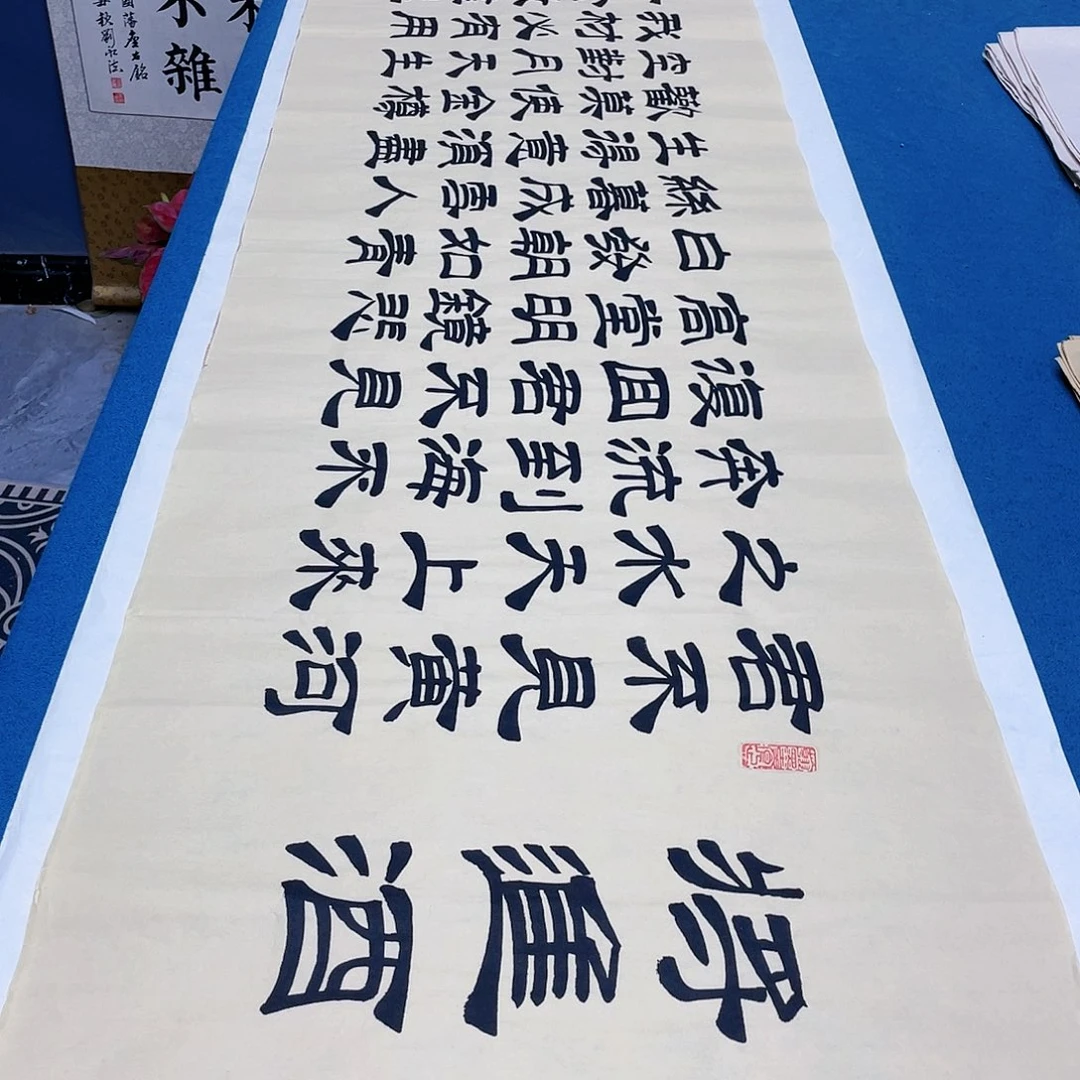 將進酒
君不見黃河
之水天上來
奔流到海不
復回君不見
高堂明鏡悲
白發朝如青
絲暮成雪人
生得意須盡
歡莫使金樽
空對月天生
我材必有用
不雜
國藩座右銘